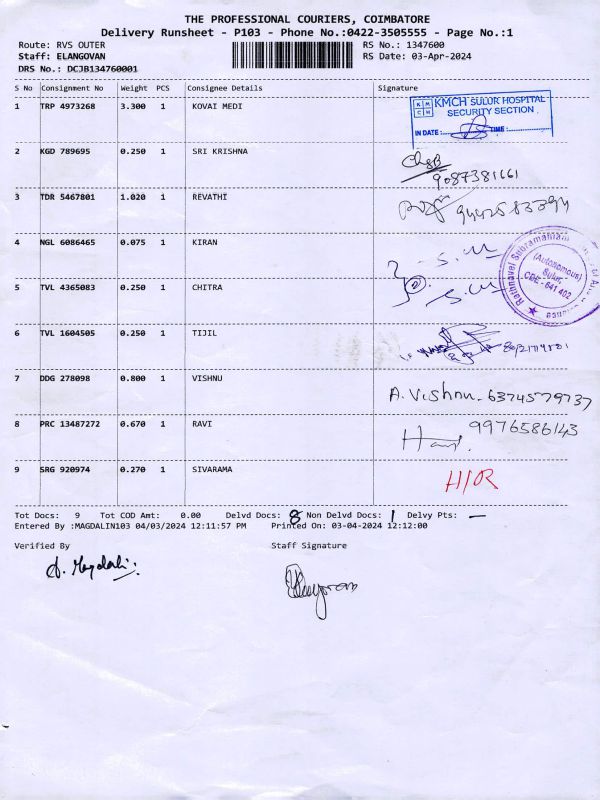 THE PROFESSIONAL COURIERS, COIMBATORE
Delivery Runsheet - P103 - Phone No.:0422-3505555 - Page No.:1
Route: RVS OUTER RS No.: 1347600
Staff: ELANGOVAN RS Date: 03-Apr-2024
DRS No.: DCJB134760001
S No Consignment No Weight PCS Consignee Details Signature
1 TRP 4973268 3.300 1 KOVAI MEDI
KMCH SULUR HOSPITAL
SECURITY SECTION
IN DATE: TIME:
2 KGD 789695 0.250 1 SRI KRISHNA
9087381661
3 TDR 5467801 1.020 1 REVATHI
4 NGL 6086465 0.075 1 KIRAN
Rathnavel Subramaniam
(Autonomous)
Sulur,
CBE - 641 402
5 TVL 4365083 0.250 1 CHITRA
6 TVL 1604505 0.250 1 TIJIL
7 DDG 278098 0.800 1 VISHNU A. Vishnu - 6374579737
8 PRC 13487272 0.670 1 RAVI 9976586143
9 SRG 920974 0.270 1 SIVARAMA H/R
Tot Docs: 9 Tot COD Amt: 0.00 Delvd Docs: 8 Non Delvd Docs: 1 Delvy Pts: —
Entered By :MAGDALIN103 04/03/2024 12:11:57 PM Printed On: 03-04-2024 12:12:00
Verified By Staff Signature